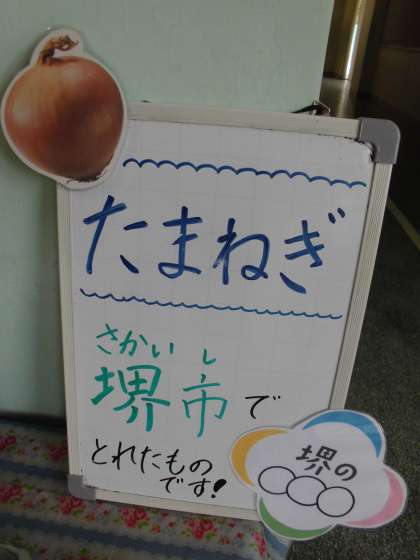 たまねぎ
さかいし
堺市で
とれたもの
です!
堺の
○○○